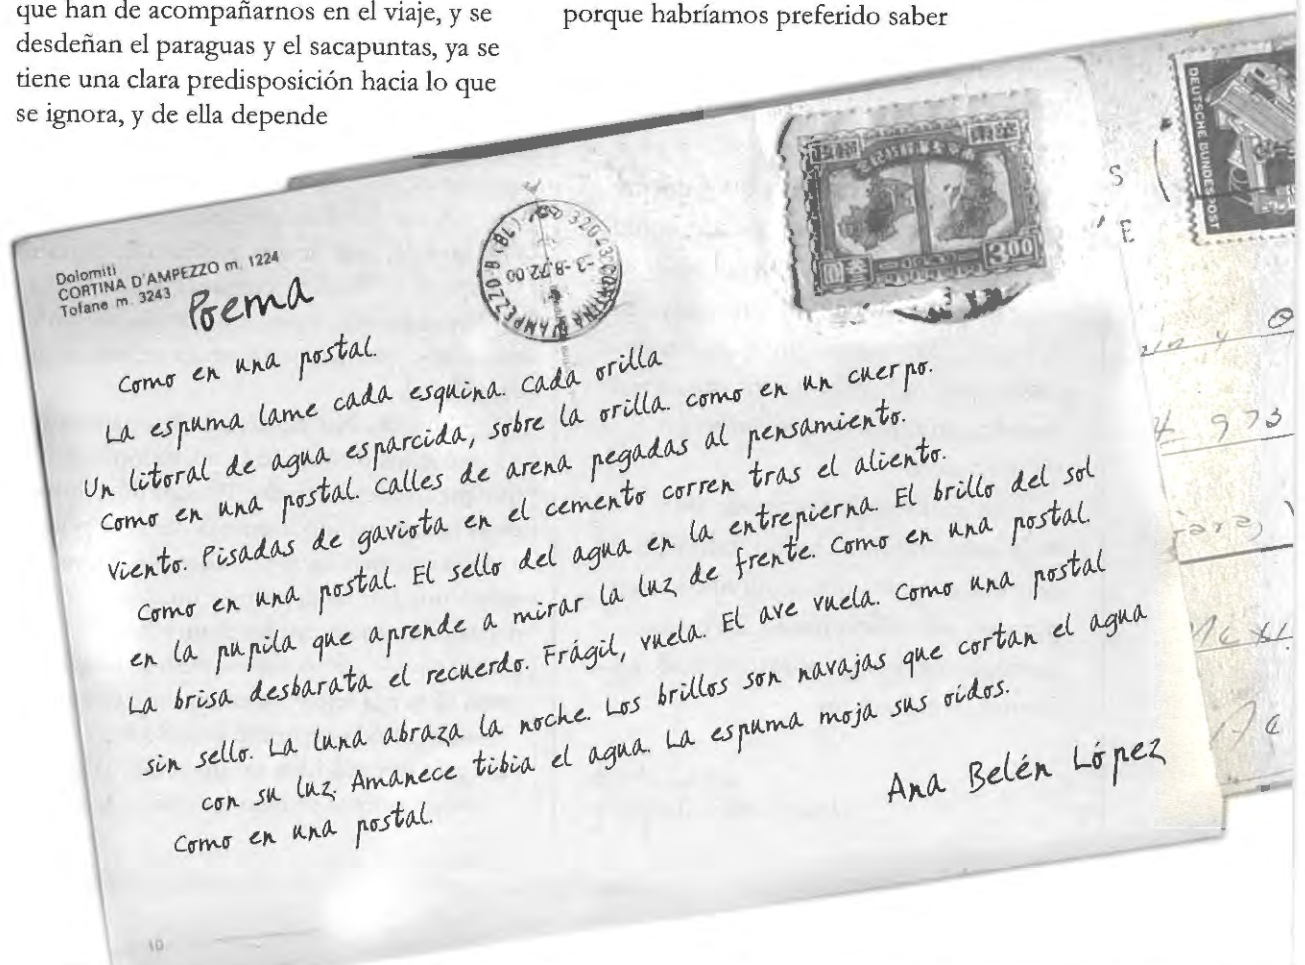 que han de acompañarnos en el viaje, y se
desdeñan el paraguas y el sacapuntas, ya se
tiene una clara predisposición hacia lo que
se ignora, y de ella depende
porque habríamos preferido saber
Dolomiti
CORTINA D'AMPEZZO m. 1224
Tofane m. 3243
Poema
Como en una postal.
La espuma lame cada esquina. Cada orilla
Un litoral de agua esparcida, sobre la orilla. como en un cuerpo.
Como en una postal. Calles de arena pegadas al pensamiento.
Viento. Pisadas de gaviota en el cemento corren tras el aliento.
Como en una postal. El sello del agua en la entrepierna. El brillo del sol
en la pupila que aprende a mirar la luz de frente. Como en una postal.
La brisa desbarata el recuerdo. Frágil, vuela. El ave vuela. Como una postal
sin sello. La luna abraza la noche. Los brillos son navajas que cortan el agua
con su luz. Amanece tibia el agua. La espuma moja sus oídos.
Como en una postal.
Ana Belén López
32043 CORTINA D'AMPEZZO-B (BL)
3 00
DEUTSCHE BUNDESPOST
S
E
973
10